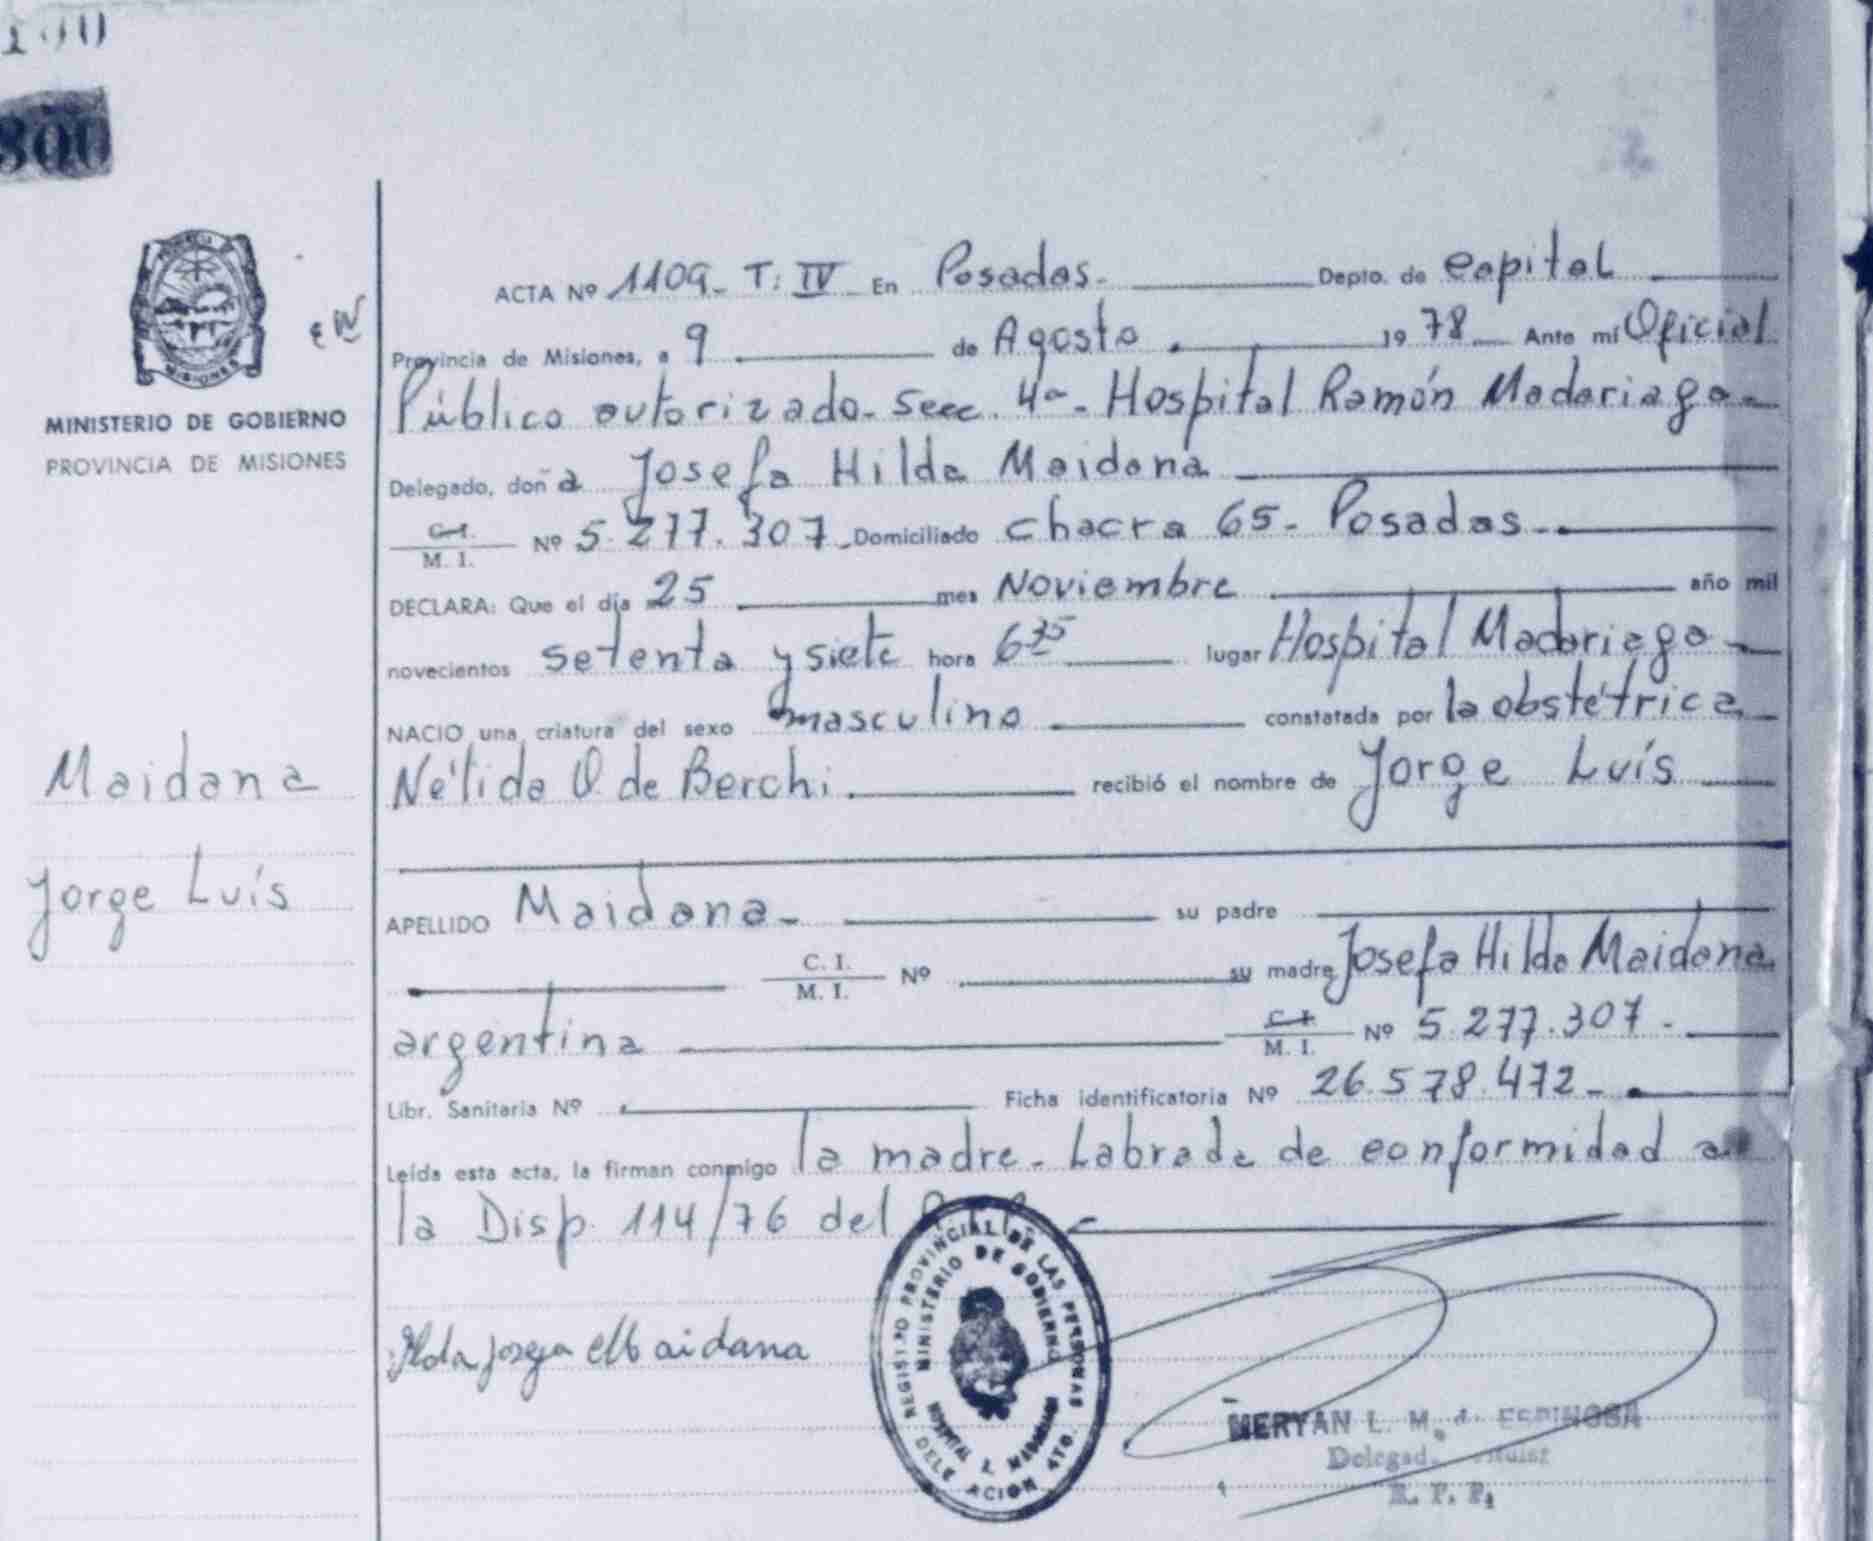 800
ACTA Nº 1109_ T: IV En Posadas. Depto. de Capital
Provincia de Misiones, a 9 de Agosto 1978 Ante mí Oficial
Público autorizado_ Secc. 4a_ Hospital Ramón Madariaga_
MINISTERIO DE GOBIERNO
PROVINCIA DE MISIONES
Delegado, doña Josefa Hilda Maidana
C.I. / M. I. Nº 5.277.307_ Domiciliado Chacra 65_ Posadas_
DECLARA: Que el día 25 mes Noviembre año mil
novecientos setenta y siete hora 6 35 lugar Hospital Madariaga
NACIO una criatura del sexo masculino constatada por la obstétrica
Maidana
Nélida O. de Berchi. recibió el nombre de Jorge Luís
Jorge Luís
APELLIDO Maidana_ su padre
C. I. / M. I. Nº su madre Josefa Hilda Maidana
argentina C.I. / M. I. Nº 5.277.307_
Libr. Sanitaria Nº Ficha identificatoria Nº 26.578.472_
Leída esta acta, la firman conmigo la madre_ Labrada de conformidad a
la Disp. 114/76 del
REGISTRO PROVINCIAL DE LAS PERSONAS
MINISTERIO DE GOBIERNO
Maidana
MERYAN L. M. ESPINOSA
R. P. P.